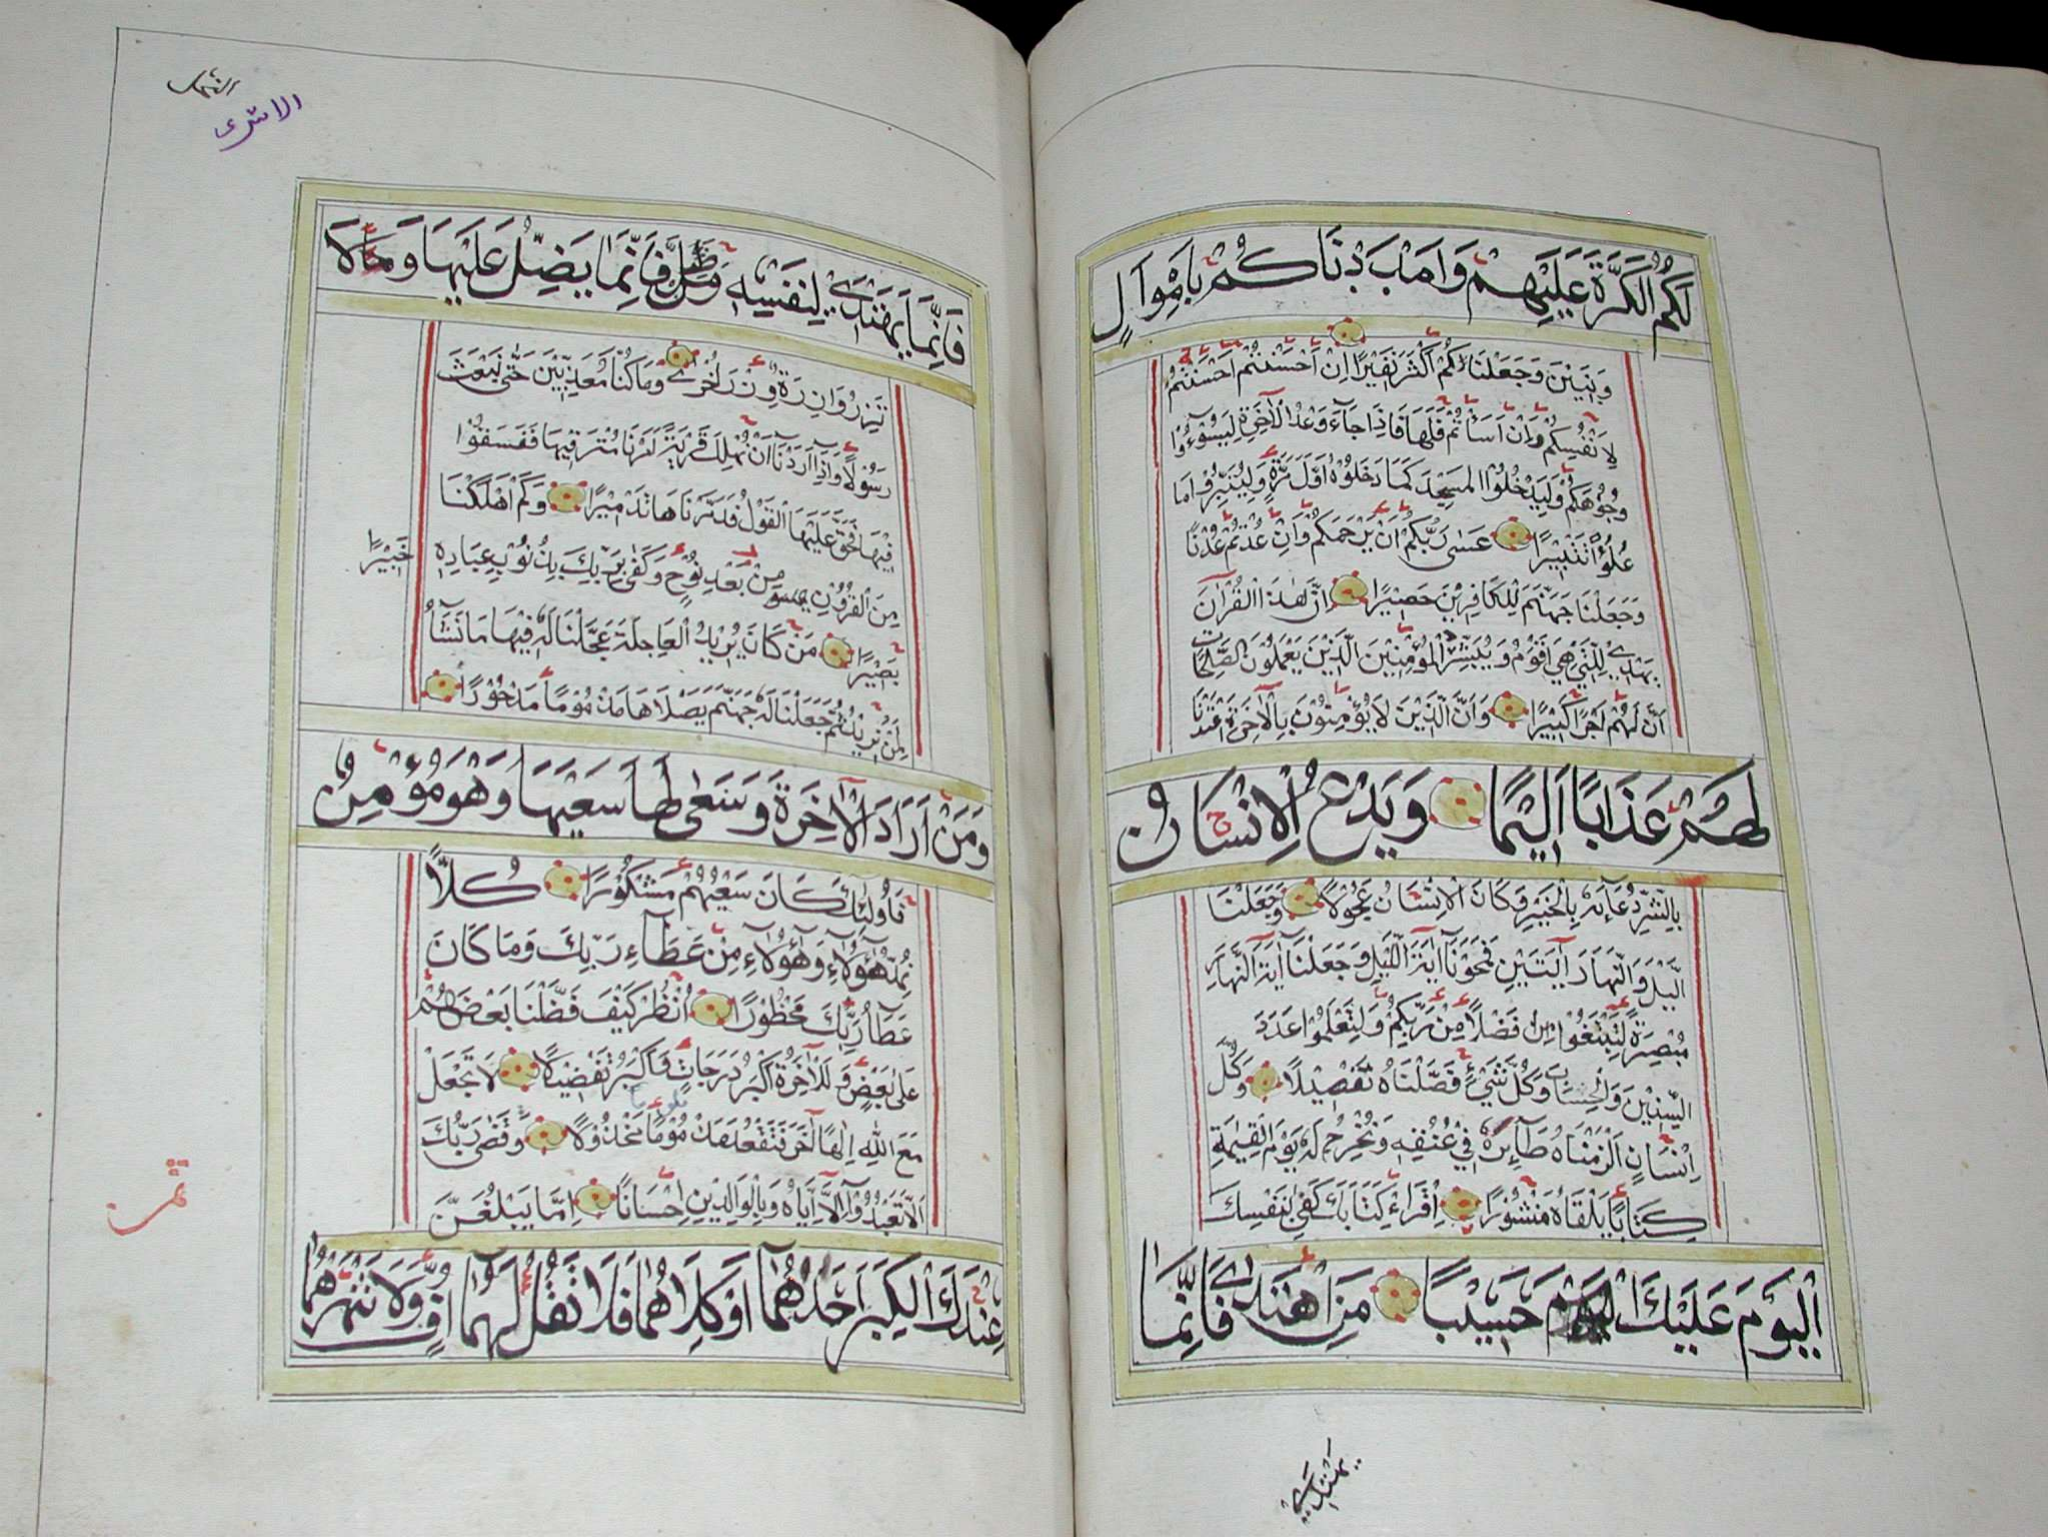 لَكُمُ الْكَرَّةَ عَلَيْهِمْ وَاَمْدَدْنَاكُمْ بِاَمْوَالٍ
وَبَنِيْنَ وَجَعَلْنَاكُمْ اَكْثَرَ نَفِيْرًا اِنْ اَحْسَنْتُمْ اَحْسَنْتُمْ
لِاَنْفُسِكُمْ وَاِنْ اَسَاْتُمْ فَلَهَا فَاِذَا جَآءَ وَعْدُ الْاٰخِرَةِ لِيَسُوْءُوْا
وُجُوْهَكُمْ وَلِيَدْخُلُوا الْمَسْجِدَ كَمَا دَخَلُوْهُ اَوَّلَ مَرَّةٍ وَلِيُتَبِّرُوْا مَا
عَلَوْا تَتْبِيْرًا عَسٰى رَبُّكُمْ اَنْ يَرْحَمَكُمْ وَاِنْ عُدْتُمْ عُدْنَا
وَجَعَلْنَا جَهَنَّمَ لِلْكَافِرِيْنَ حَصِيْرًا اِنَّ هٰذَا الْقُرْاٰنَ
يَهْدِيْ لِلَّتِيْ هِيَ اَقْوَمُ وَيُبَشِّرُ الْمُؤْمِنِيْنَ الَّذِيْنَ يَعْمَلُوْنَ الصّٰلِحَاتِ
اَنَّ لَهُمْ اَجْرًا كَبِيْرًا وَاَنَّ الَّذِيْنَ لَا يُؤْمِنُوْنَ بِالْاٰخِرَةِ اَعْتَدْنَا
لَهُمْ عَذَابًا اَلِيْمًا وَيَدْعُ الْاِنْسَانُ
بِالشَّرِّ دُعَآءَهٗ بِالْخَيْرِ وَكَانَ الْاِنْسَانُ عَجُوْلًا وَجَعَلْنَا
اللَّيْلَ وَالنَّهَارَ اٰيَتَيْنِ فَمَحَوْنَآ اٰيَةَ اللَّيْلِ وَجَعَلْنَآ اٰيَةَ النَّهَارِ
مُبْصِرَةً لِتَبْتَغُوْا مِنْ فَضْلًا مِنْ رَبِّكُمْ وَلِتَعْلَمُوْا عَدَدَ
السِّنِيْنَ وَالْحِسَابَ وَكُلَّ شَيْءٍ فَصَّلْنَاهُ تَفْصِيْلًا وَكُلَّ
اِنْسَانٍ اَلْزَمْنَاهُ طَآئِرَهٗ فِيْ عُنُقِهٖ وَنُخْرِجُ لَهٗ يَوْمَ الْقِيٰمَةِ
كِتَابًا يَلْقَاهُ مَنْشُوْرًا اِقْرَاْ كِتَابَكَ كَفٰى بِنَفْسِكَ
الْيَوْمَ عَلَيْكَ حَسِيْبًا مَنِ اهْتَدٰى فَاِنَّمَا
يَهْتَدِيْ
الاسرى
فَاِنَّمَا يَهْتَدِيْ لِنَفْسِهٖ وَمَنْ ضَلَّ فَاِنَّمَا يَضِلُّ عَلَيْهَا وَلَا
تَزِرُ وَازِرَةٌ وِزْرَ اُخْرٰى وَمَا كُنَّا مُعَذِّبِيْنَ حَتّٰى نَبْعَثَ
رَسُوْلًا وَاِذَآ اَرَدْنَآ اَنْ نُهْلِكَ قَرْيَةً اَمَرْنَا مُتْرَفِيْهَا فَفَسَقُوْا
فِيْهَا فَحَقَّ عَلَيْهَا الْقَوْلُ فَدَمَّرْنَاهَا تَدْمِيْرًا وَكَمْ اَهْلَكْنَا
مِنَ الْقُرُوْنِ مِنْ بَعْدِ نُوْحٍ وَكَفٰى بِرَبِّكَ بِذُنُوْبِ عِبَادِهٖ خَبِيْرًا
بَصِيْرًا مَنْ كَانَ يُرِيْدُ الْعَاجِلَةَ عَجَّلْنَا لَهٗ فِيْهَا مَا نَشَآءُ
لِمَنْ نُرِيْدُ ثُمَّ جَعَلْنَا لَهٗ جَهَنَّمَ يَصْلَاهَا مَذْمُوْمًا مَدْحُوْرًا
وَمَنْ اَرَادَ الْاٰخِرَةَ وَسَعٰى لَهَا سَعْيَهَا وَهُوَ مُؤْمِنٌ
فَاُولٰئِكَ كَانَ سَعْيُهُمْ مَشْكُوْرًا كُلًّا
نُمِدُّ هٰٓؤُلَآءِ وَهٰٓؤُلَآءِ مِنْ عَطَآءِ رَبِّكَ وَمَا كَانَ
عَطَآءُ رَبِّكَ مَحْظُوْرًا اُنْظُرْ كَيْفَ فَضَّلْنَا بَعْضَهُمْ
عَلٰى بَعْضٍ وَلَلْاٰخِرَةُ اَكْبَرُ دَرَجَاتٍ وَاَكْبَرُ تَفْضِيْلًا لَا تَجْعَلْ
مَعَ اللّٰهِ اِلٰهًا اٰخَرَ فَتَقْعُدَ مَذْمُوْمًا مَخْذُوْلًا وَقَضٰى رَبُّكَ
اَلَّا تَعْبُدُوْٓا اِلَّآ اِيَّاهُ وَبِالْوَالِدَيْنِ اِحْسَانًا اِمَّا يَبْلُغَنَّ
عِنْدَكَ الْكِبَرَ اَحَدُهُمَآ اَوْ كِلَاهُمَا فَلَا تَقُلْ لَهُمَآ اُفٍّ وَلَا تَنْهَرْهُمَا